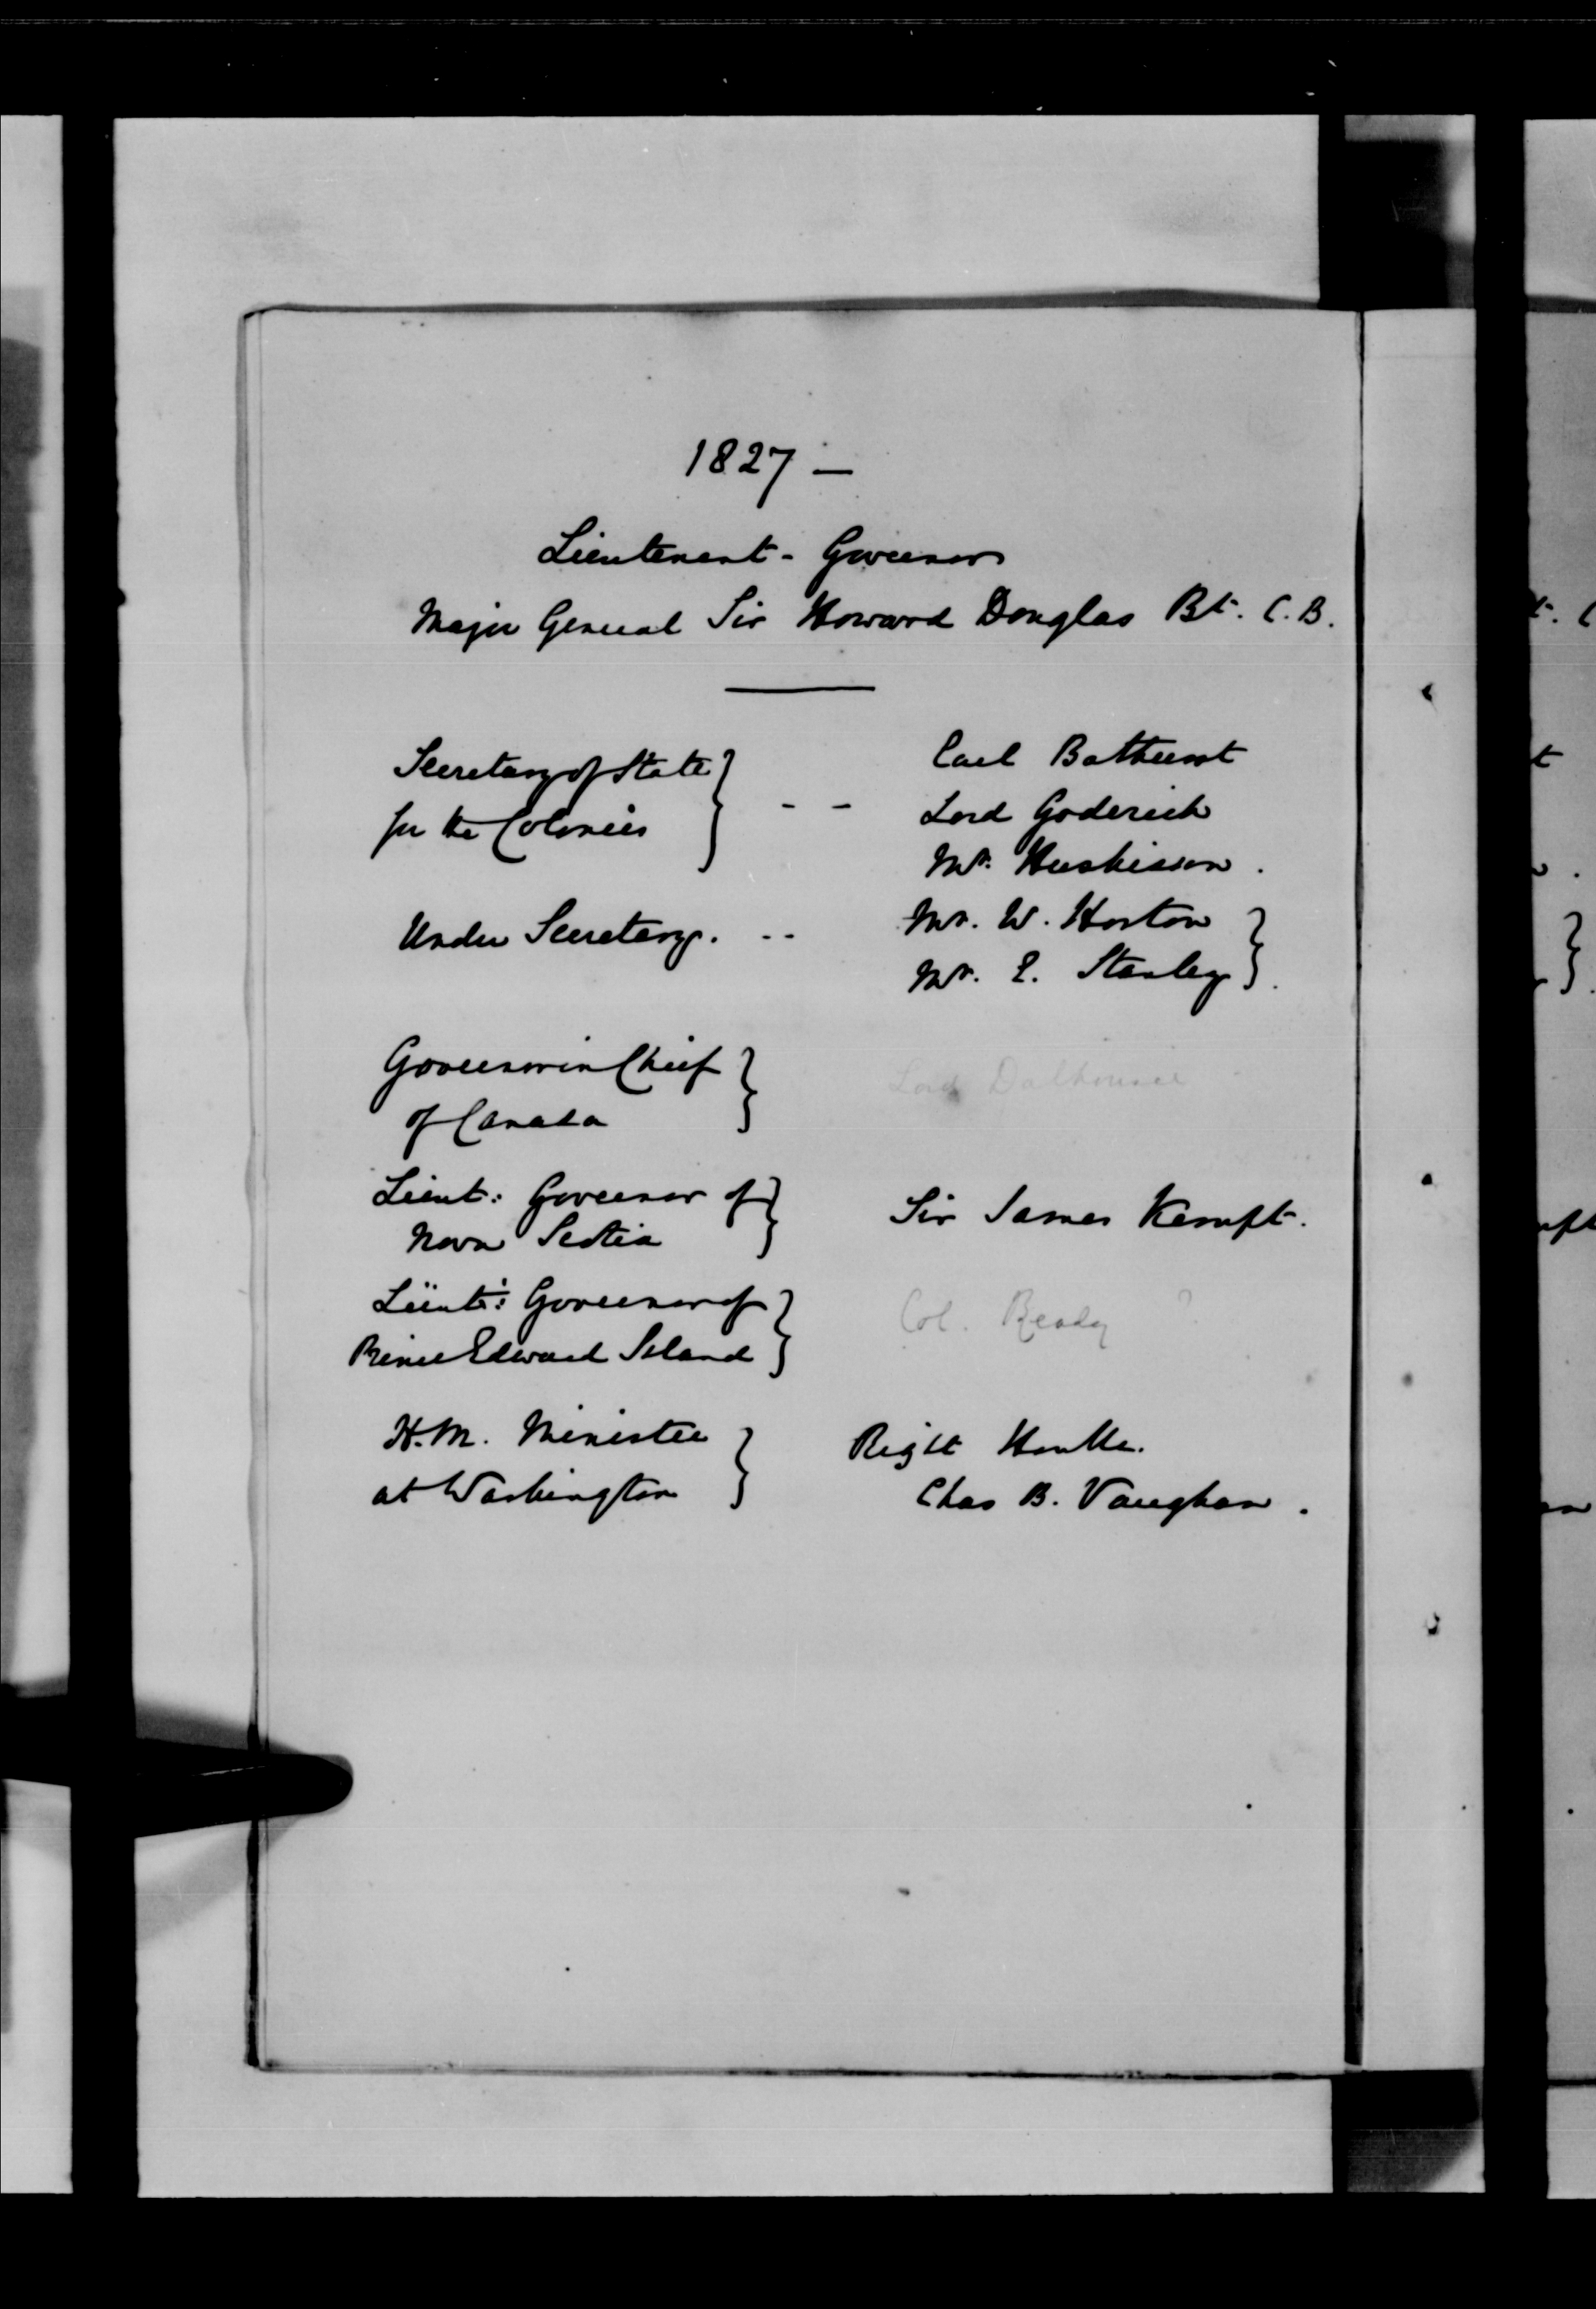 1827 —
Lieutenant - Governor
Major General Sir Howard Douglas Bt. C.B.
Secretary of State } - - Earl Bathurst
for the Colonies Lord Goderich
Mr. Huskisson .
Under Secretary. -- Mr. W. Horton }
Mr. E. Stanley .
Governor in Chief } Lord Dalhousie
of Canada
Lieut: Governor of } Sir James Kempt.
Nova Scotia
Lieut: Governor of } Col. Ready ?
Prince Edward Island
H.M. Minister } Right Honble.
at Washington Chas B. Vaughan .